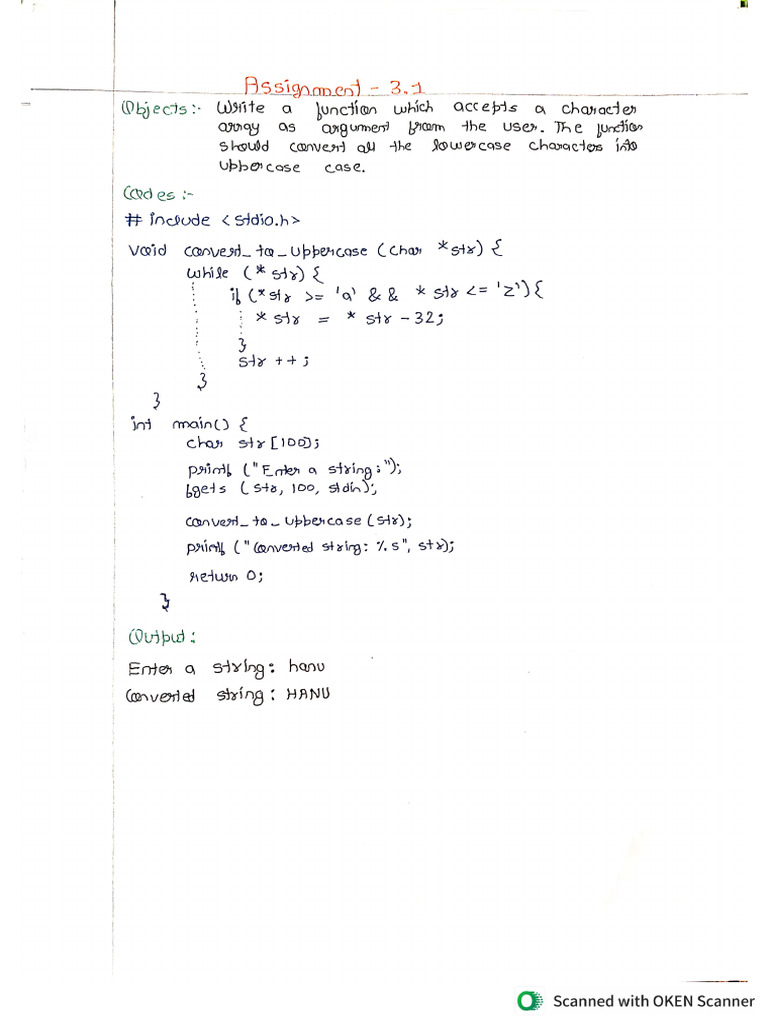 Assignment - 3.1
Objects:- Write a function which accepts a character
array as argument from the user. The function
should convert all the lowercase characters into
uppercase case.
Codes:-
# include <stdio.h>
void convert_to_uppercase (char *str) {
while (* str) {
if (*str >= 'a' && * str <= 'z') {
* str = * str - 32;
}
str ++;
}
}
int main() {
char str [100];
printf ("Enter a string:");
fgets (str, 100, stdin);
convert_to_uppercase (str);
printf ("Converted string: %s", str);
return 0;
}
Output:
Enter a string: hanu
Converted string: HANU
Scanned with OKEN Scanner